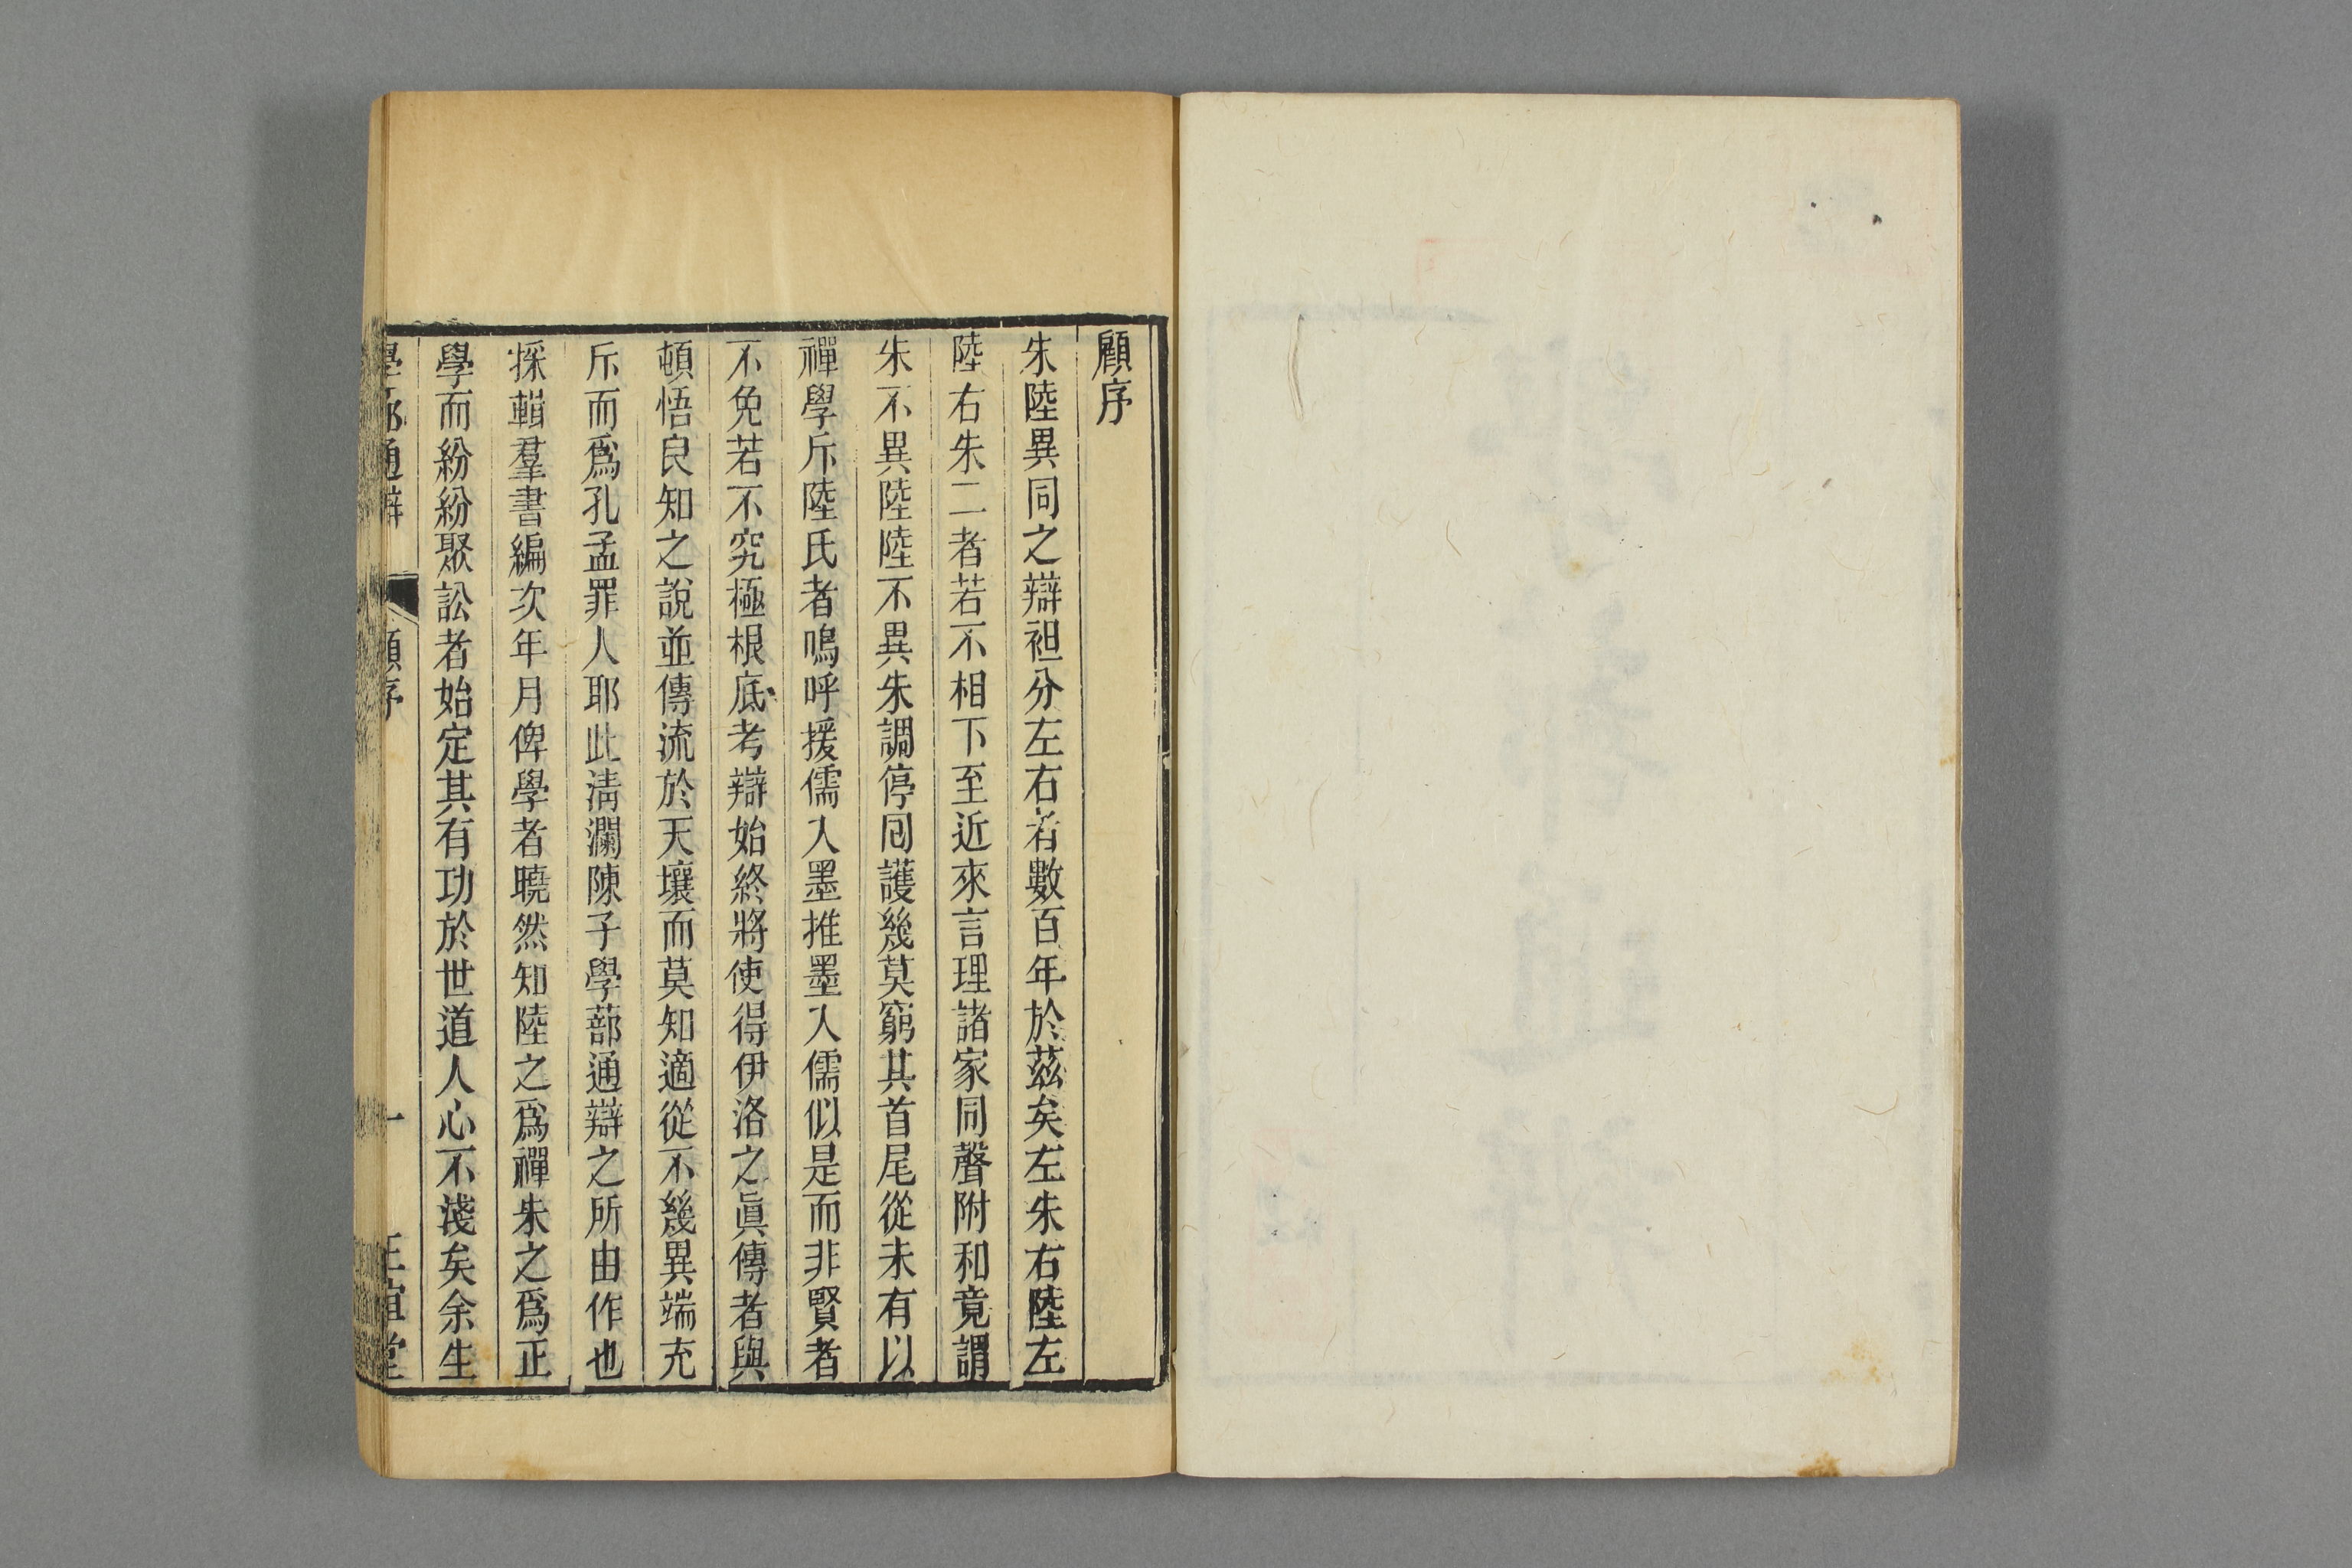 顧序
朱陸異同之辯袒分左右者數百年於茲矣左朱右陸左
陸右朱二者若不相下至近來言理諸家同聲附和竟謂
朱不異陸陸不異朱調停回護幾莫窮其首尾從未有以
禪學斥陸氏者嗚呼援儒入墨推墨入儒似是而非賢者
不免若不究極根底考辯始終將使得伊洛之眞傳者與
頓悟良知之說並傳流於天壤而莫知適從不幾異端充
斥而爲孔孟罪人耶此淸瀾陳子學蔀通辯之所由作也
採輯羣書編次年月俾學者曉然知陸之爲禪朱之爲正
學而紛紛聚訟者始定其有功於世道人心不淺矣余生
學蔀通辯 顧序 一 正誼堂